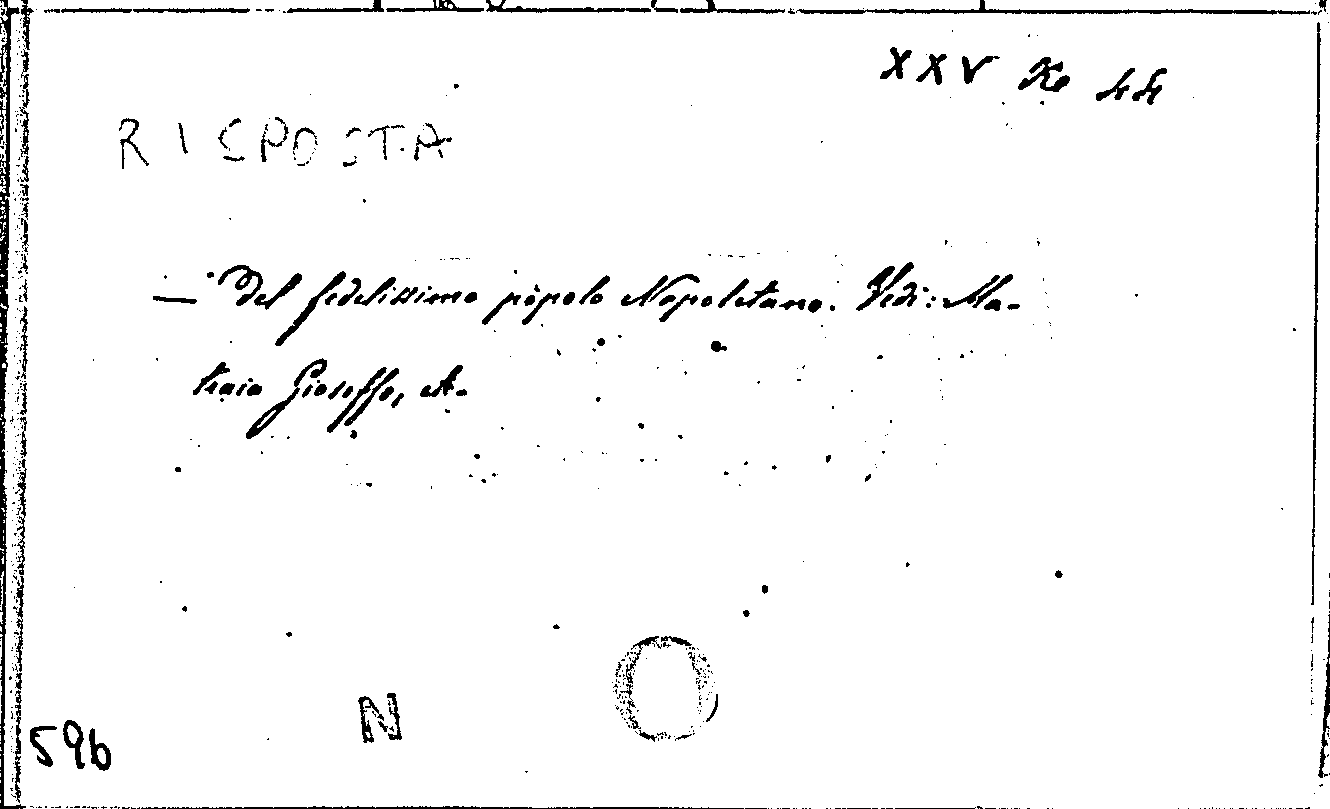 XXV Ke 44
RISPOSTA
— Del fedelissimo popolo Napoletano. Vedi: Ma-
traia Gioseffo, A.
N
596